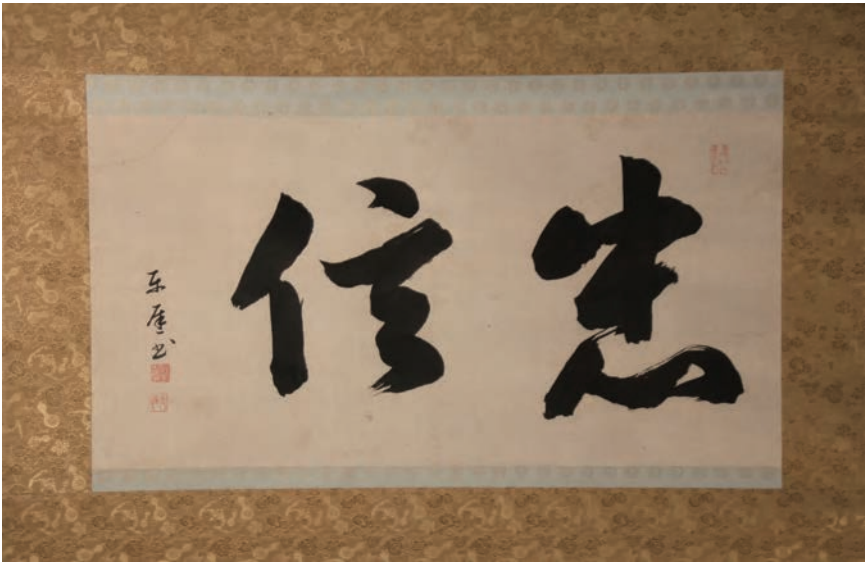 忠信
東厓書